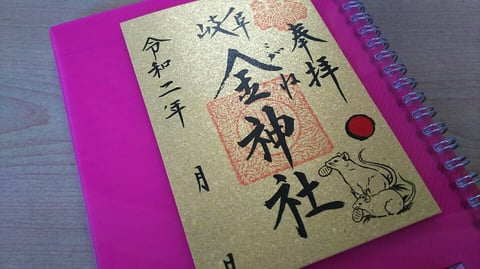 奉拝
岐阜
金神社
こがね
令和二年
月
日